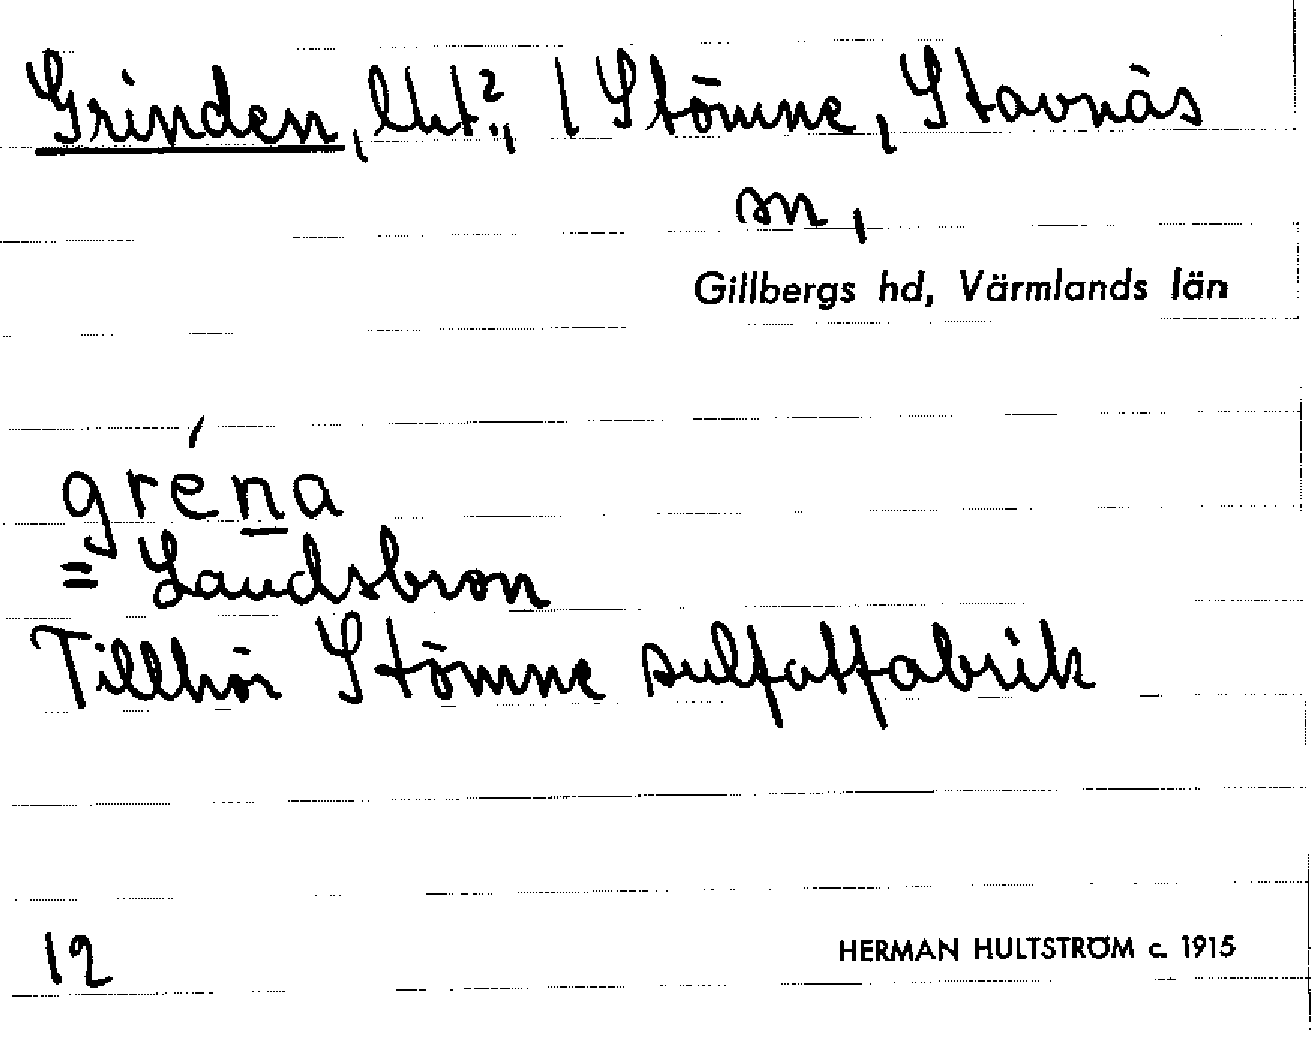 Grinden, lht?, / Stömne, Stavnäs
sn,
Gillbergs hd, Värmlands län
gréna
= Landsbron
Tillhör Stömne sulfatfabrik
12
HERMAN HULTSTRÖM c. 1915